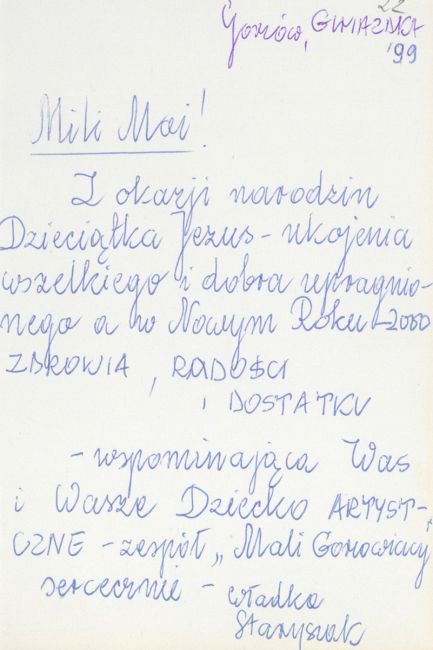 22
Gorzów, GWIAZDKA
'99
Mili Moi!
Z okazji narodzin
Dzieciątka Jezus - ukojenia
wszelkiego i dobra upragnio-
nego a w Nowym Roku - 2000
ZDROWIA, RADOŚCI
i DOSTATKU
- wspominająca Was
i Wasze Dziecko ARTYST-
CZNE - zespół „Mali Gorzowiacy
serecznie - Władka
Starysiak